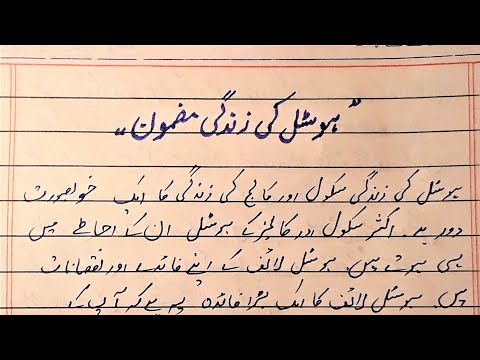 "ہوسٹل کی زندگی مضمون"
ہوسٹل کی زندگی سکول اور کالج کی زندگی کا ایک خوبصورت
دور ہے۔ اکثر سکول اور کالجز کے ہوسٹل ان کے احاطے میں
ہی ہوتے ہیں۔ ہوسٹل لائف کے اپنے فائدے اور نقصانات
ہیں۔ ہوسٹل لائف کا ایک بڑا فائدہ یہ ہے کہ آپ کے